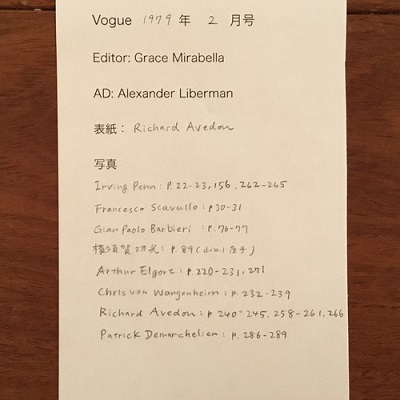 Vogue 1979 年 2 月号
Editor: Grace Mirabella
AD: Alexander Liberman
表紙： Richard Avedon
写真
Irving Penn : p.22-23, 156, 262-265
Francesco Scavullo : p30-31
Gian Paolo Barbieri : p.76-77
横須賀功光 : p.89 (山口小夜子)
Arthur Elgort : p.220-231, 271
Chris von Wangenheim : p.232-239
Richard Avedon : p 240-245, 258-261, 266
Patrick Demarchelier : p.286-289